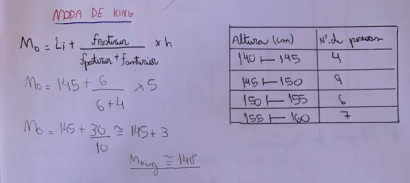 MODA DE KING
Mo = Li + fposterior / fposterior + fanterior x h
Mo = 145 + 6 / 6+4 x 5
Mo = 145 + 30 / 10 ≅ 145 + 3
Mking ≅ 148
Altura (cm) Nº de pessoas
140 ⊢ 145 4
145 ⊢ 150 9
150 ⊢ 155 6
155 ⊢ 160 7